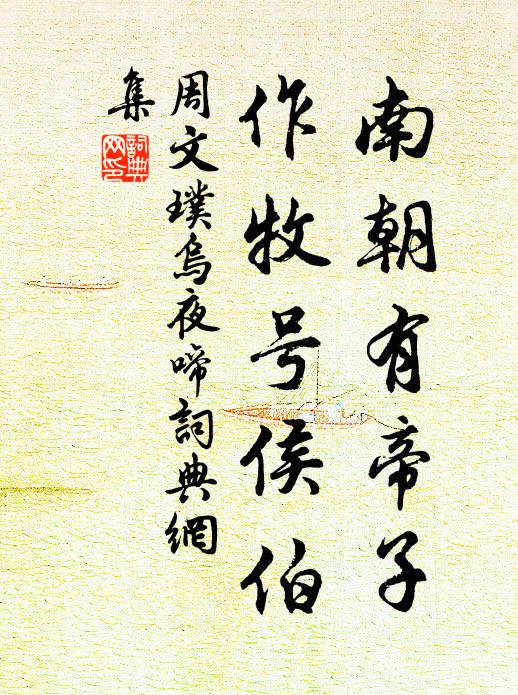 南朝有帝子
作牧号侯伯
周文璞烏夜啼詞典網
集
詞典
网印